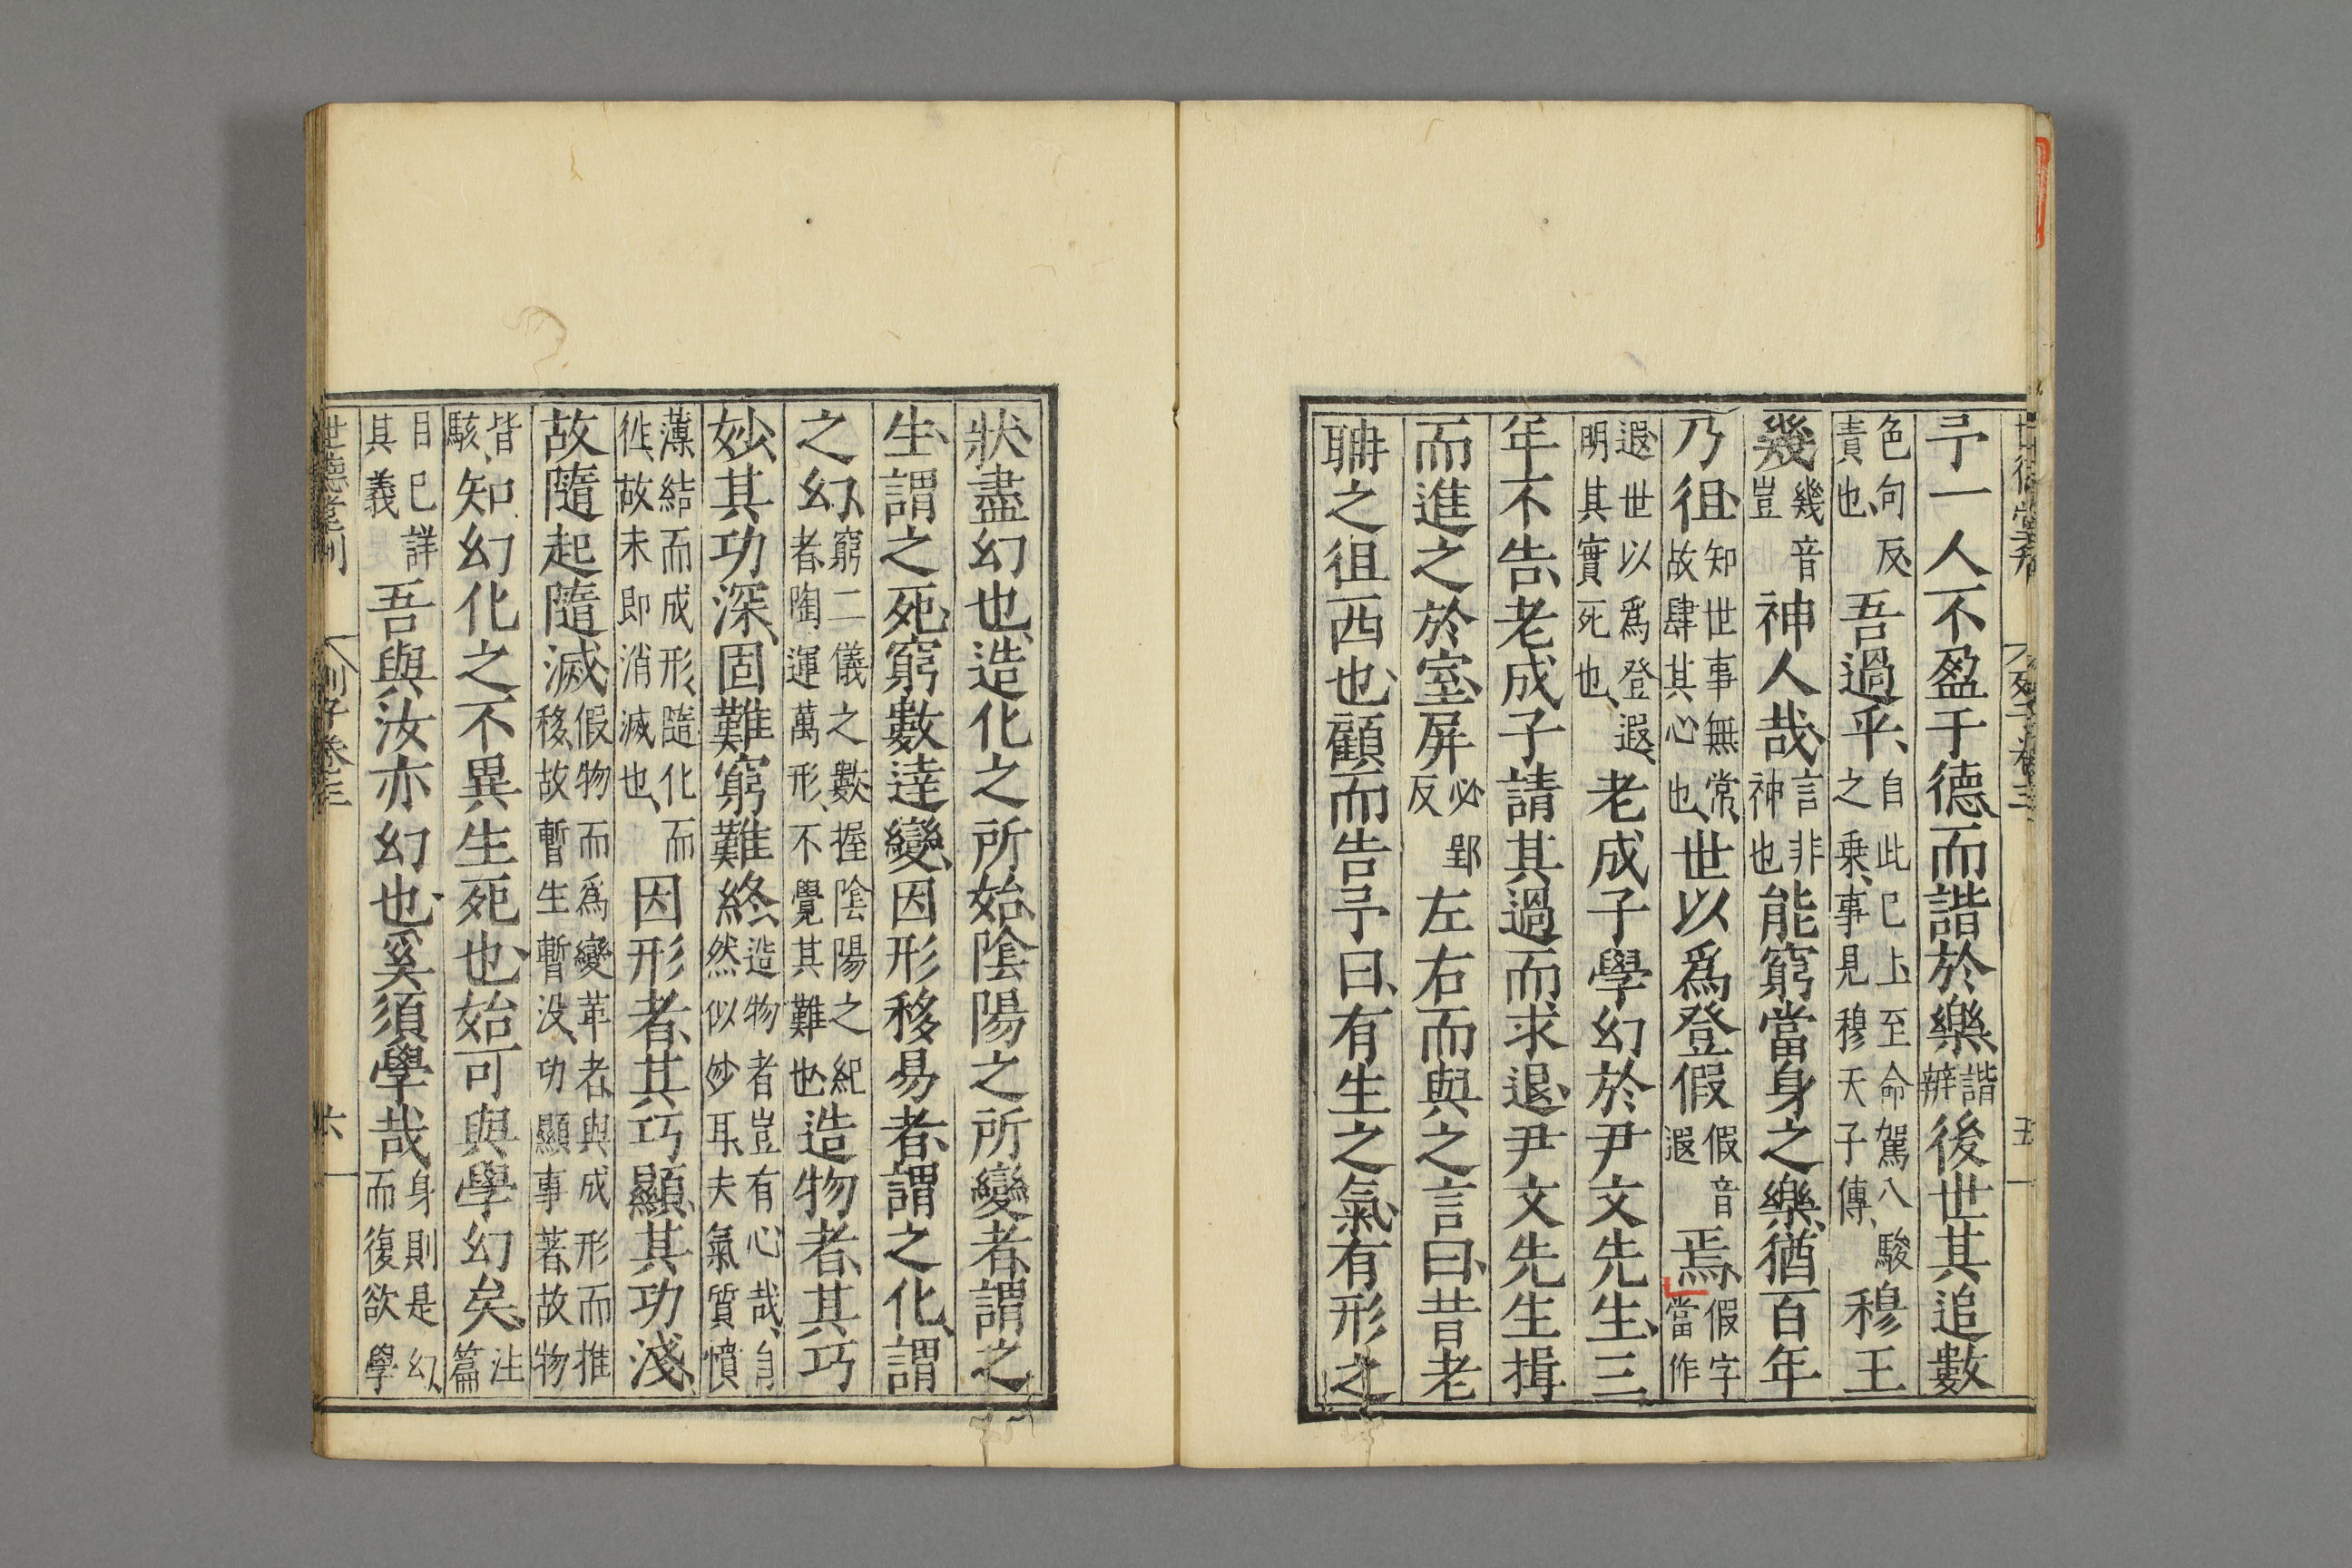 予一人不盈于德而諧於樂諧辨後世其追數
色句反責也吾過乎自此已上至命駕八駿之乗事見穆天子傳穆王
幾幾音豈神人哉言非神也能窮當身之樂猶百年
乃徂知世事無常故肆其心也世以爲登假假音遐焉假字當作
遐世以爲登遐明其實死也老成子學幻於尹文先生三
年不告老成子請其過而求退尹文先生揖
而進之於室屏必郢反左右而與之言曰昔老
聃之徂西也顧而告予曰有生之氣有形之
狀盡幻也造化之所始陰陽之所變者謂之
生謂之死窮數達變因形移易者謂之化謂
之幻窮二儀之數握陰陽之紀者陶運萬形不覺其難也造物者其巧
妙其功深固難窮難終造物者豈有心哉自然似妙耳夫氣質憤
薄結而成形隨化而徃故未即消滅也因形者其巧顯其功淺
故隨起隨滅假物而爲變革者與成形而推移故暫生暫没功顯事著故物
皆駭知幻化之不異生死也始可與學幻矣注篇
目已詳其義吾與汝亦幻也奚須學哉身則是幻而復欲學
世德堂刊 列子卷三 六